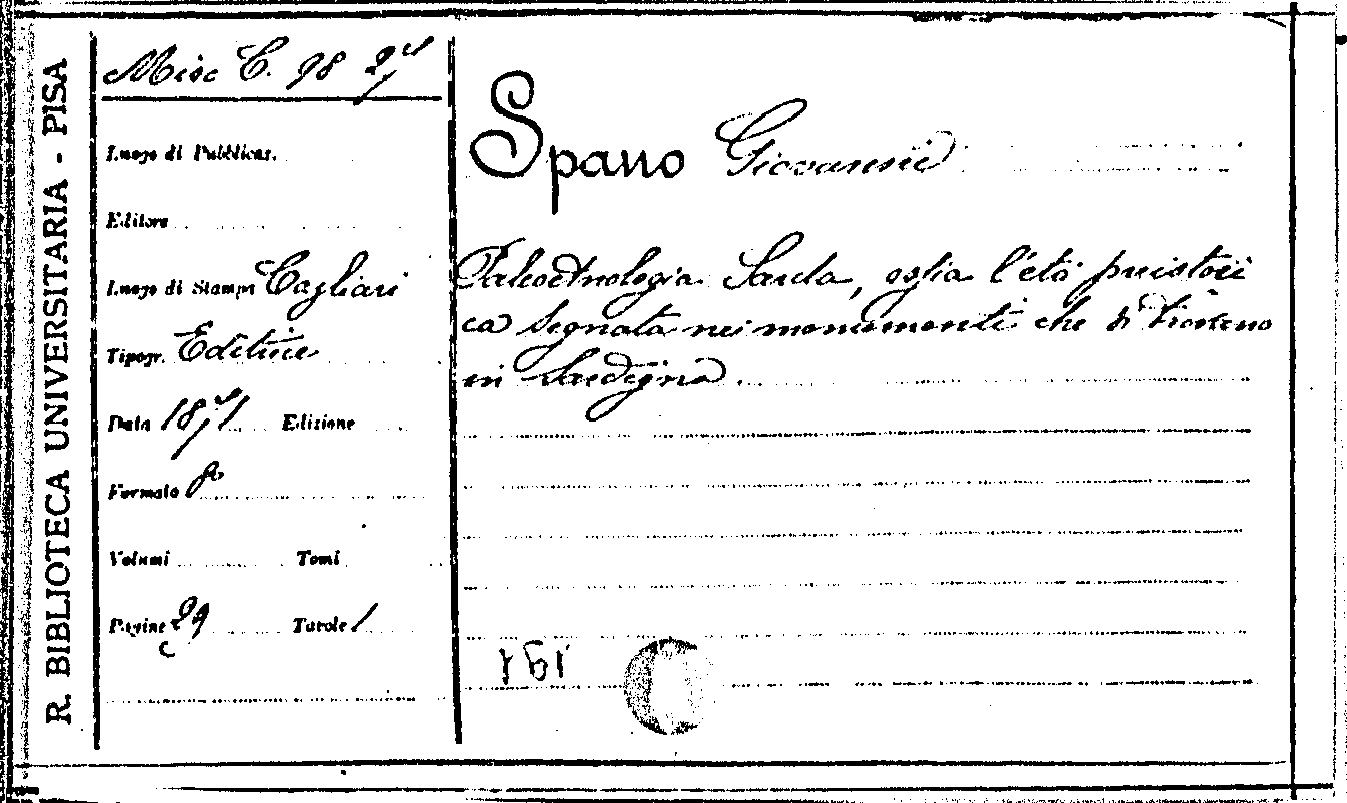 R. BIBLIOTECA UNIVERSITARIA - PISA
Misc C. 98 27
Luogo di Pubblicaz.
Editore
Luogo di Stampa Cagliari
Tipogr. Editrice
Data 1871 Edizione
Formato 8°
Volumi Tomi
Pagine 29 Tavole 1
Spano Giovanni
Paleoetnologia Sarda, ossia l'età preistori
ca segnata nei monumenti che si trovano
in Sardegna